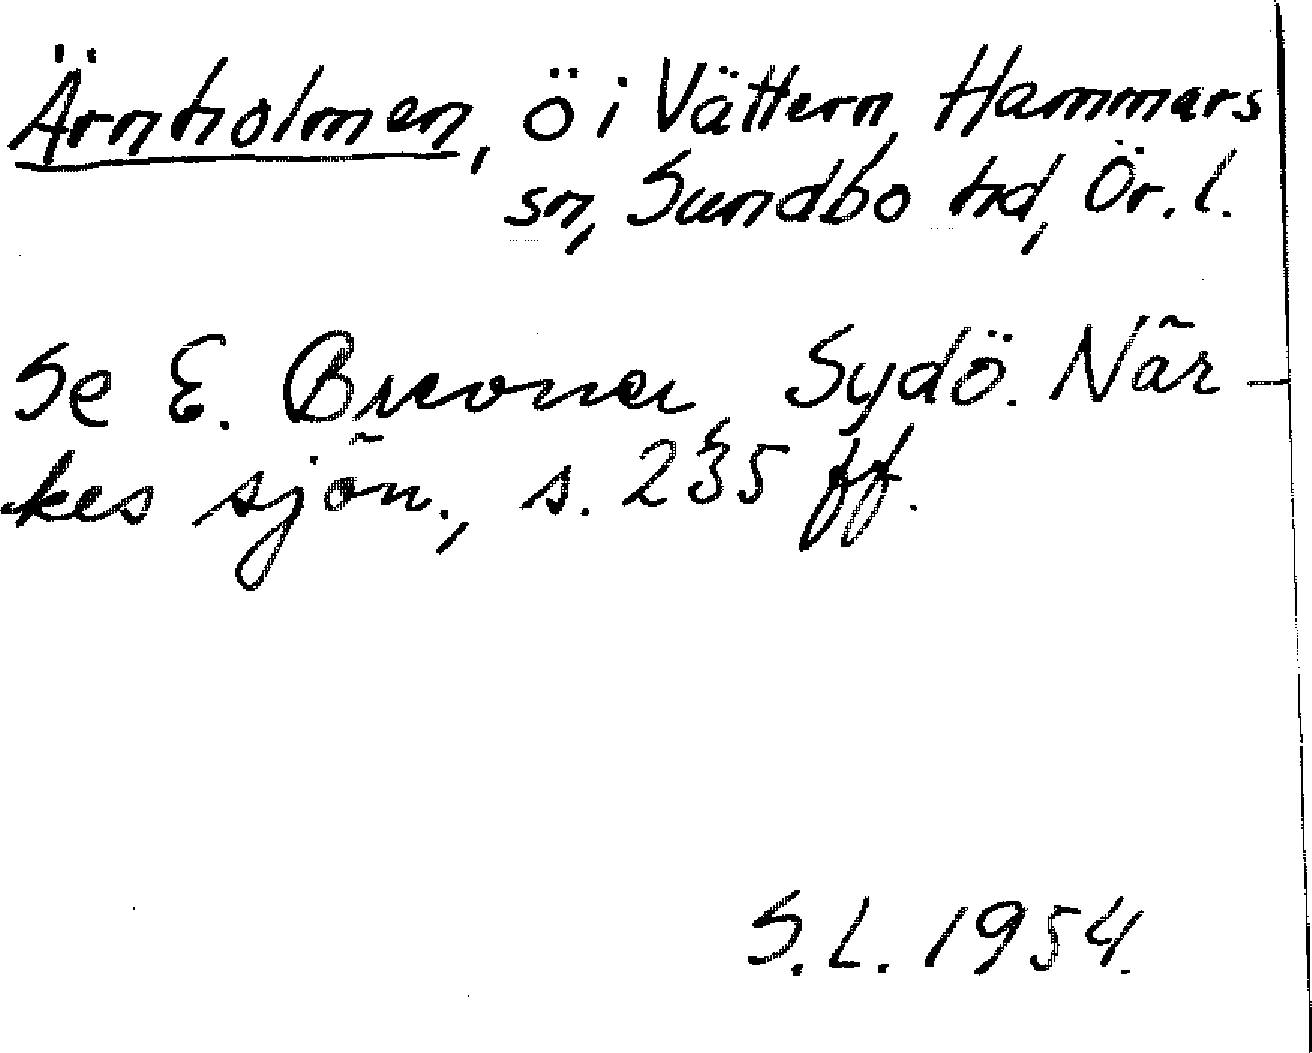 Ärnholmen, ö i Vättern, Hammars
sn, Sundbo hd, Ör. l.
Se E. Brevner, Sydö. När-
kes sjön., s. 235 ff.
S.L. 1954.